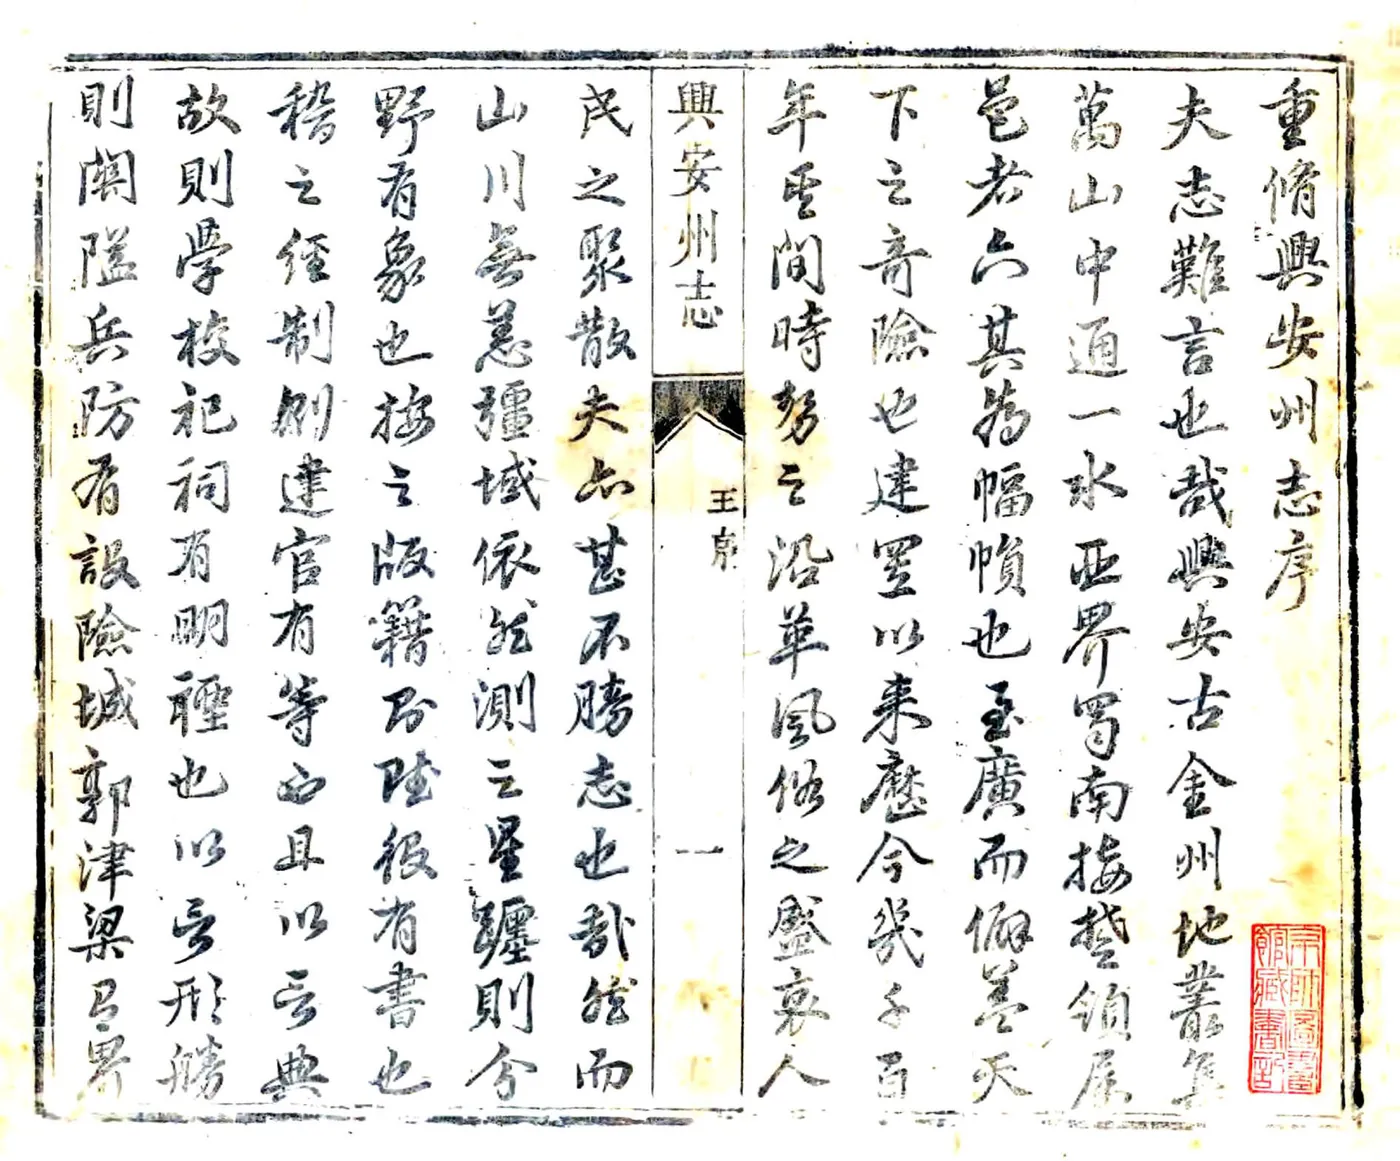 重脩興安州志序
夫志難言也哉興安古金州地叢集
萬山中通一水亞界蜀南接楚領属
邑者六其為幅幀也至廣而僻盖天
下之竒險也建置以来歷今幾千百
年其間時勢之沿革風俗之盛衰人
興安州志
王序
一
民之聚散夫亦甚不勝志也哉然而
山川無恙疆域依然測之星躔則分
野有象也按之版籍則陸役有書也
稽之經制創建官有等而且以言典
故則學校祀祠有明禋也以言形勝
則関隘兵防有設險城郭津梁有界
京師圖書館藏書記